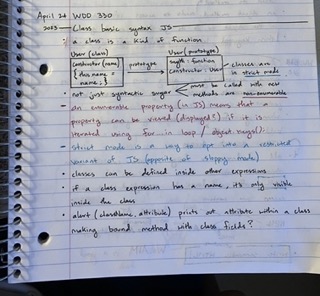 April 24 WDD 330
Class basic syntax JS
: a class is a kind of function
User (class) User (prototype)
constructor (name) prototype sayHi: function - classes are
{ this.name = constructor: User in strict mode
name; }
• not just syntactic sugar must be called with new
methods are non-enumerable
- an enumerable property (in JS) means that a
property can be viewed (displayed?) if it is
iterated using for...in loop / object.keys().
- strict mode is a way to opt into a restricted
variant of JS (opposite of sloppy mode)
• classes can be defined inside other expressions
• if a class expression has a name, it's only visible
inside the class
• alert (className, attribute) prints out attribute within a class
making bound method with class fields?